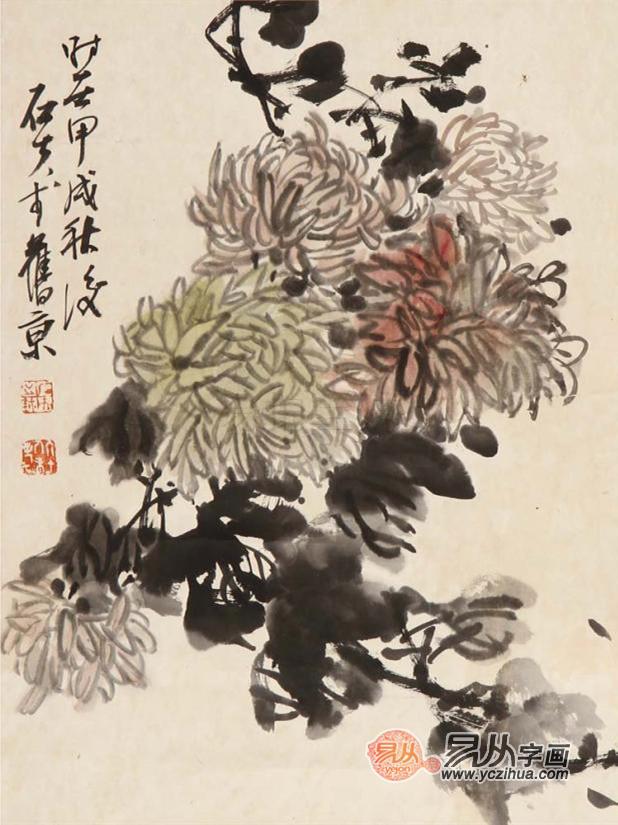 时在甲戌秋後
石夫于舊京
易从
易从字画
www.yczihua.com